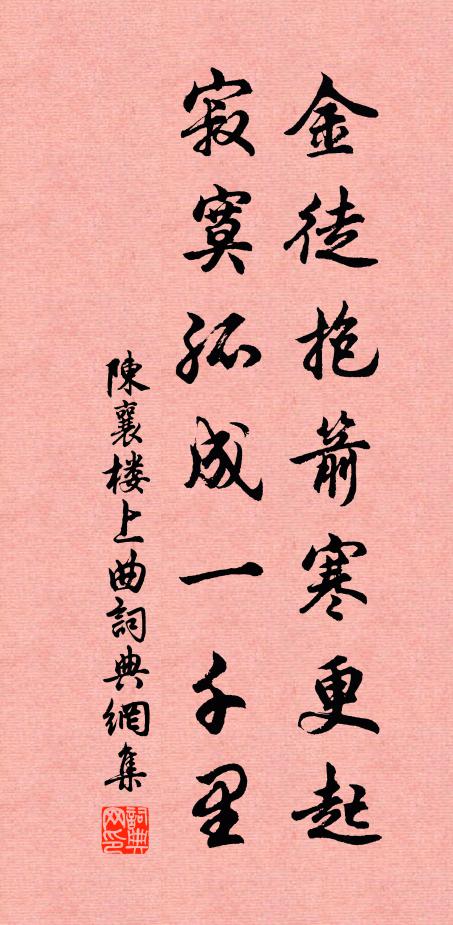 金徒抱箭寒更起
寂寞孤成一千里
陳襄楼上曲詞典網集
詞典
网印